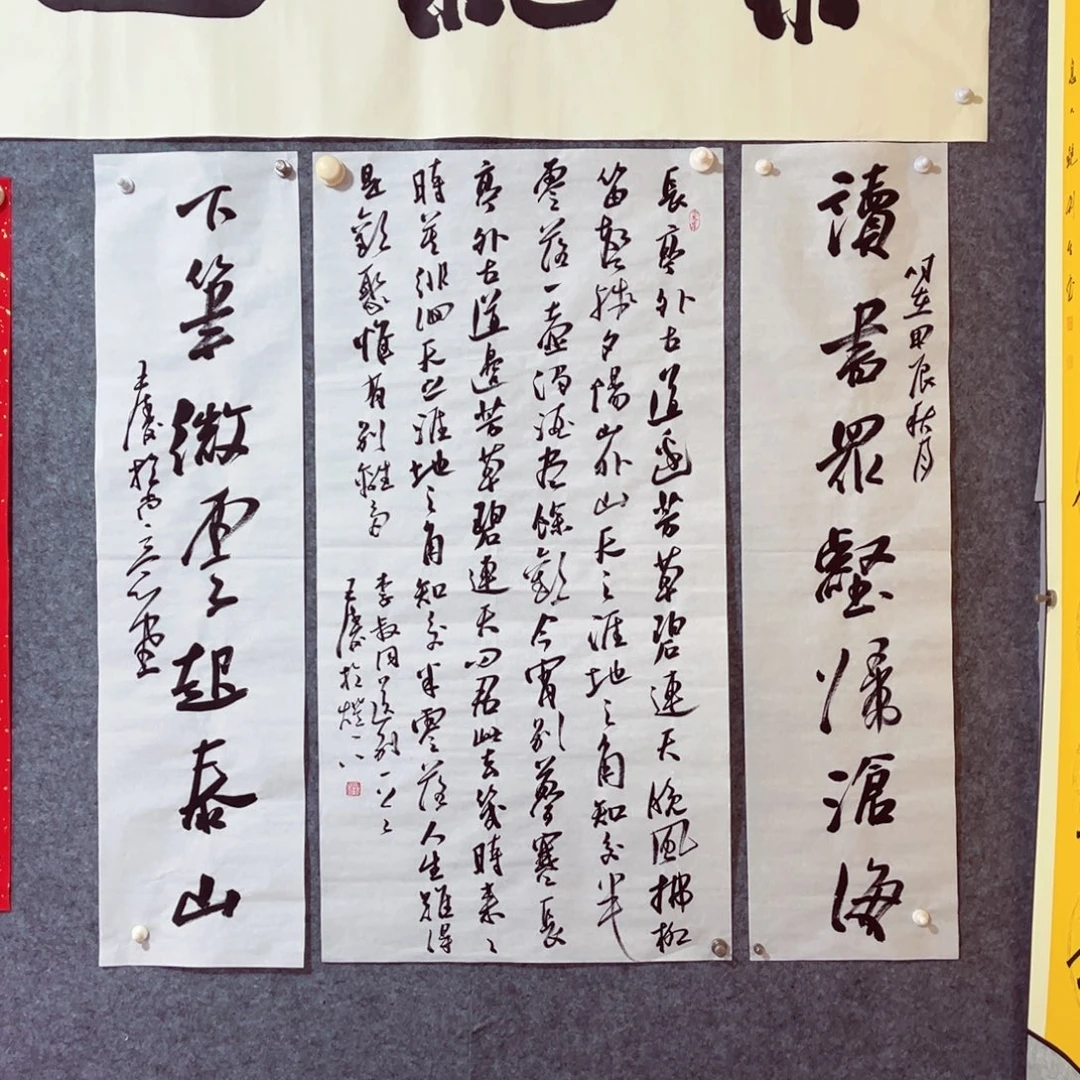 讀書眾壑歸滄海
時在甲辰秋月
長亭外古道邊芳草碧連天晚風拂柳
笛聲殘夕陽山外山天之涯地之角知交半
零落一壺濁酒盡餘歡今宵別夢寒長
亭外古道邊芳草碧連天問君此去幾時來〻
時莫徘徊天之涯地之角知交半零落人生難得
是歡聚惟有別離多
李叔同送別
下筆微雲起泰山